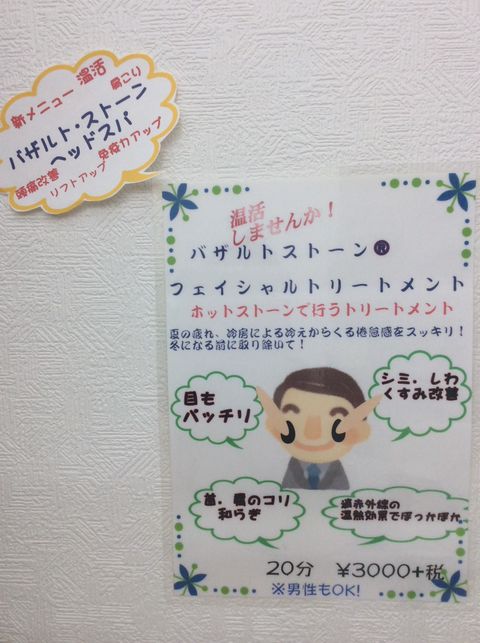 新メニュー 温活 肩こり
バザルト・ストーン
ヘッドスパ
頭痛改善 免疫力アップ
リフトアップ
温活
しませんか！
バザルトストーン
フェイシャルトリートメント
ホットストーンで行うトリートメント
夏の疲れ、冷房による冷えからくる倦怠感をスッキリ！
冬になる前に取り除いて！
目も
パッチリ
シミ．しわ
くすみ改善
首．肩のコリ
和らぎ
遠赤外線の
温熱効果でぽっかぽか
20分 ¥3000+税
※男性もOK!